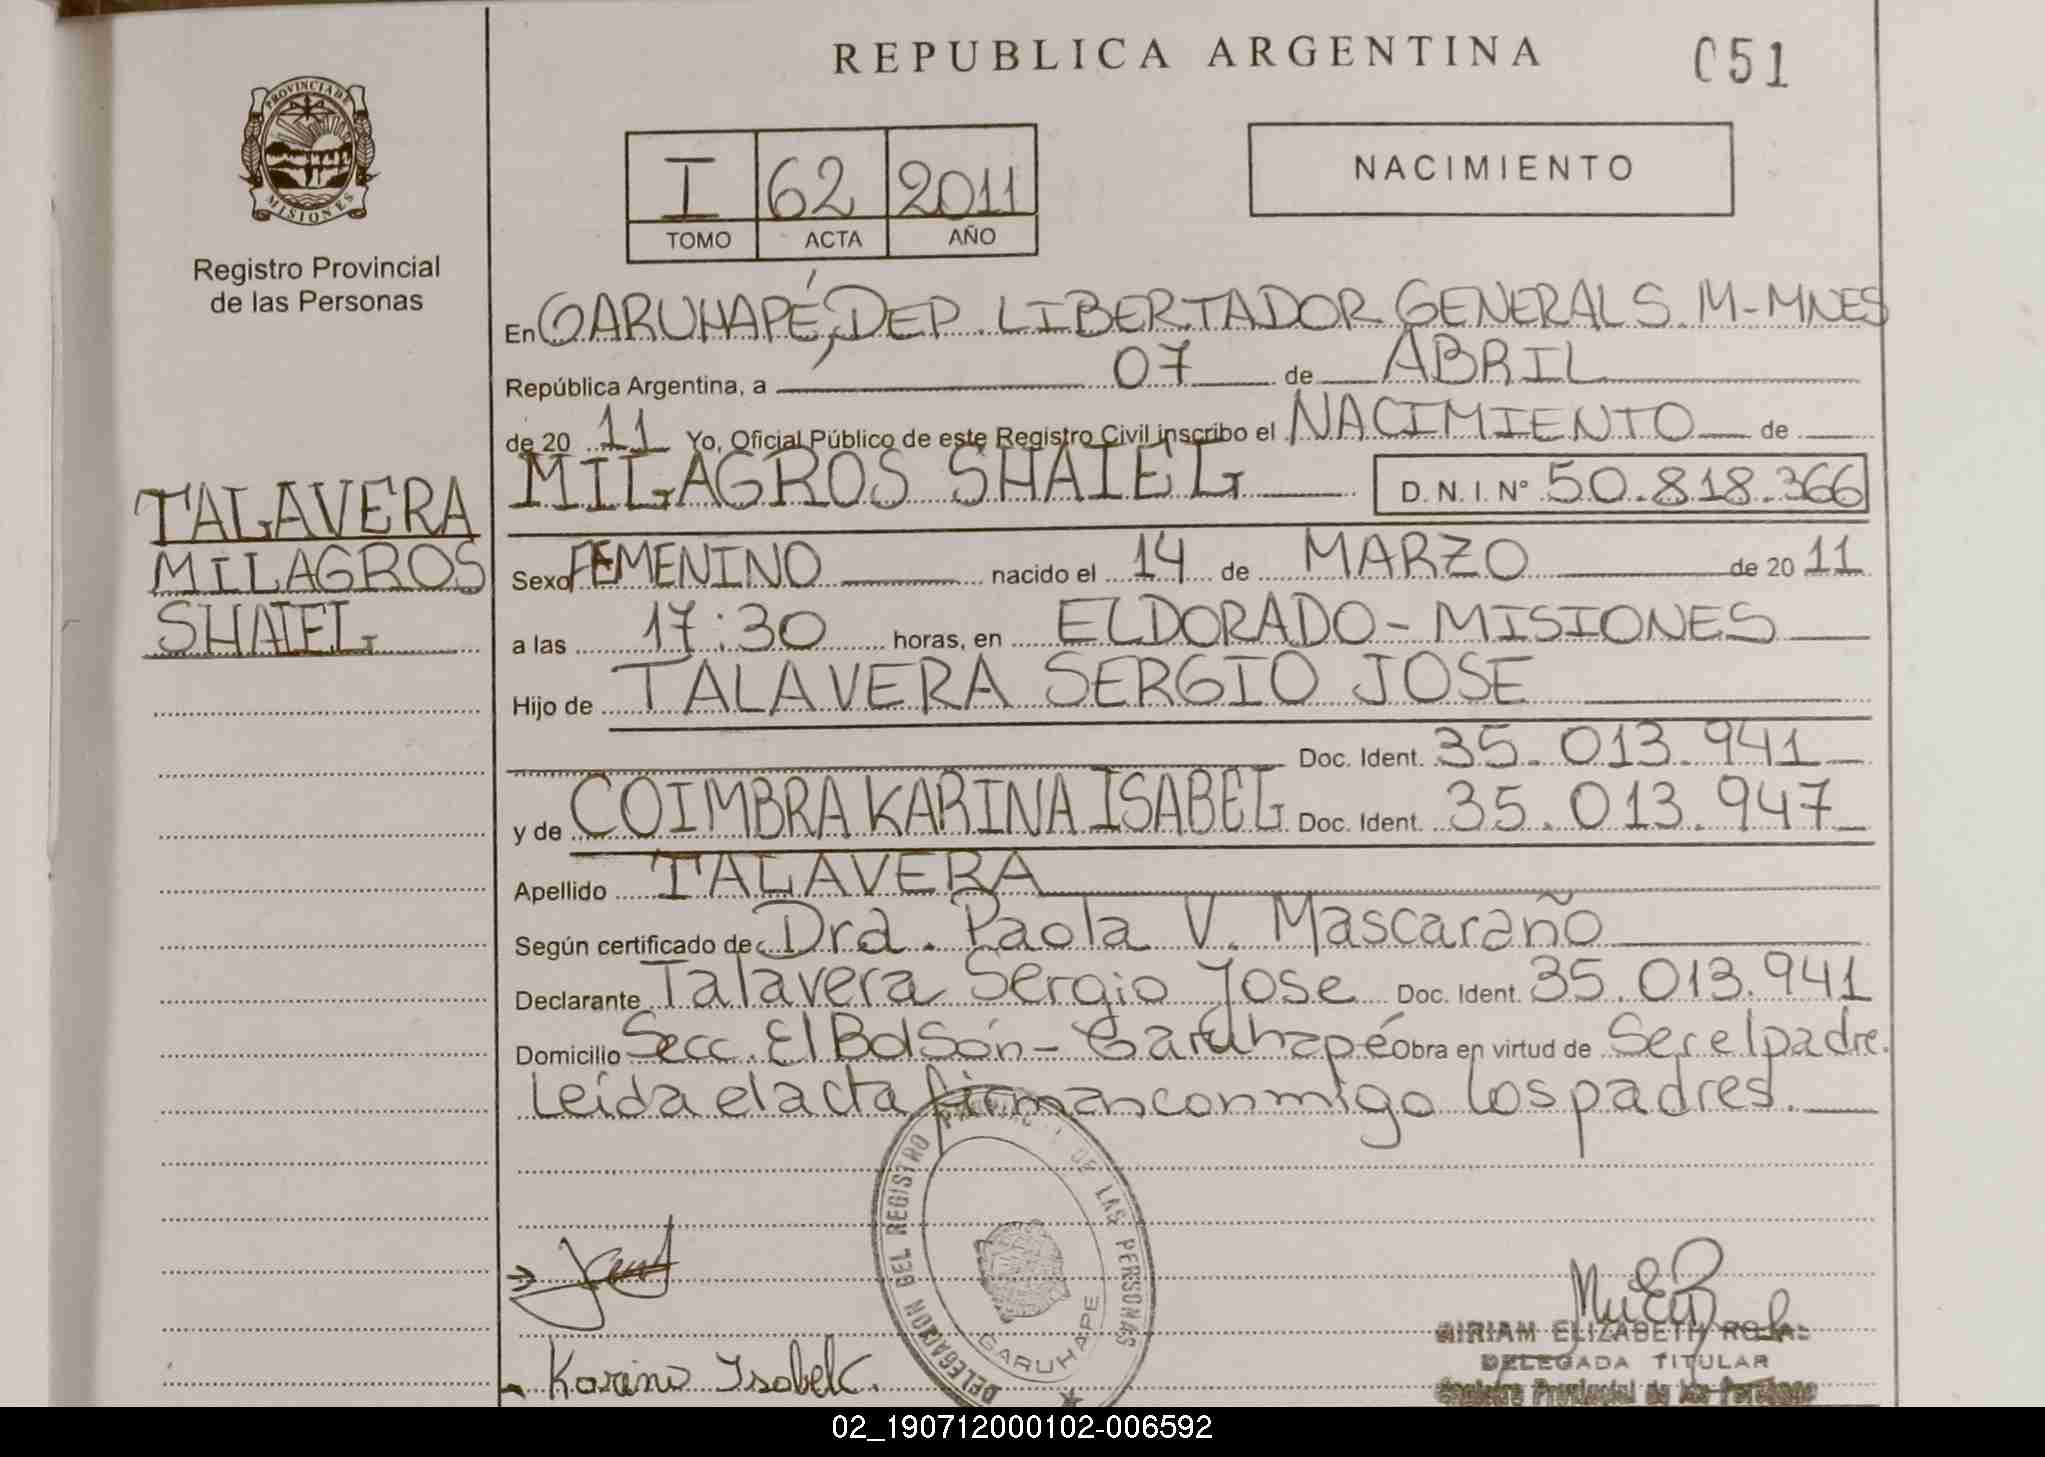 REPUBLICA ARGENTINA
051
PROVINCIA DE
MISIONES
Registro Provincial
de las Personas
I 62 2011
TOMO ACTA AÑO
NACIMIENTO
En GARUHAPÉ, DEP. LIBERTADOR GENERAL S. M-MNES
República Argentina, a 07 de ABRIL
de 20 11 Yo, Oficial Público de este Registro Civil inscribo el NACIMIENTO de
MILAGROS SHAIEL D.N.I. Nº 50.818.366
TALAVERA
MILAGROS
SHAIEL
Sexo FEMENINO nacido el 14 de MARZO de 20 11
a las 17:30 horas, en ELDORADO - MISIONES
Hijo de TALAVERA SERGIO JOSE
Doc. Ident. 35.013.941
y de COIMBRA KARINA ISABEL Doc. Ident. 35.013.947
Apellido TALAVERA
Según certificado de Dra. Paola V. Mascaraño
Declarante Talavera Sergio Jose Doc. Ident. 35.013.941
Domicilio Secc. El Bolsón - Garuhapé Obra en virtud de Ser el padre.
Leída el acta firman conmigo los padres.
DELEGACION DEL REGISTRO DE LAS PERSONAS
GARUHAPE
Karina Isabel C.
MIRIAM ELIZABETH ROJAS
DELEGADA TITULAR
Registro Provincial de las Personas
02_190712000102-006592